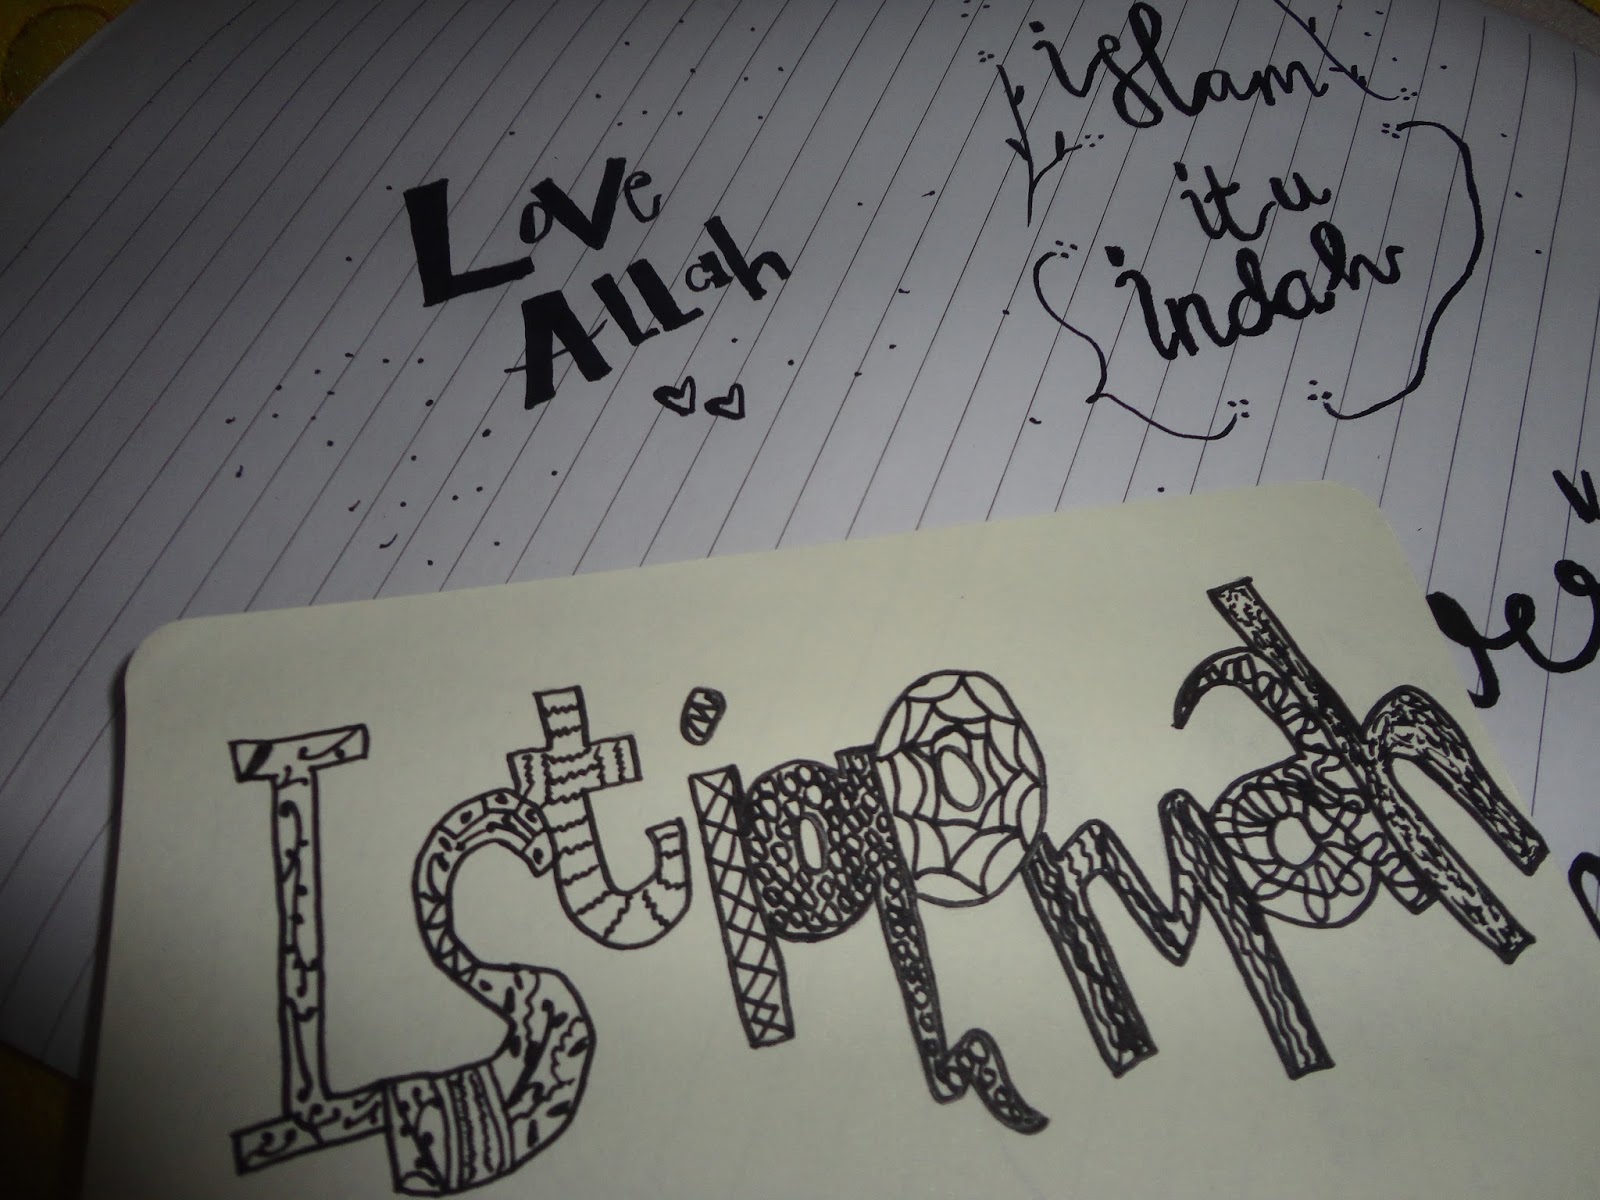 Love
Allah
islam
itu
indah
Istiqomah